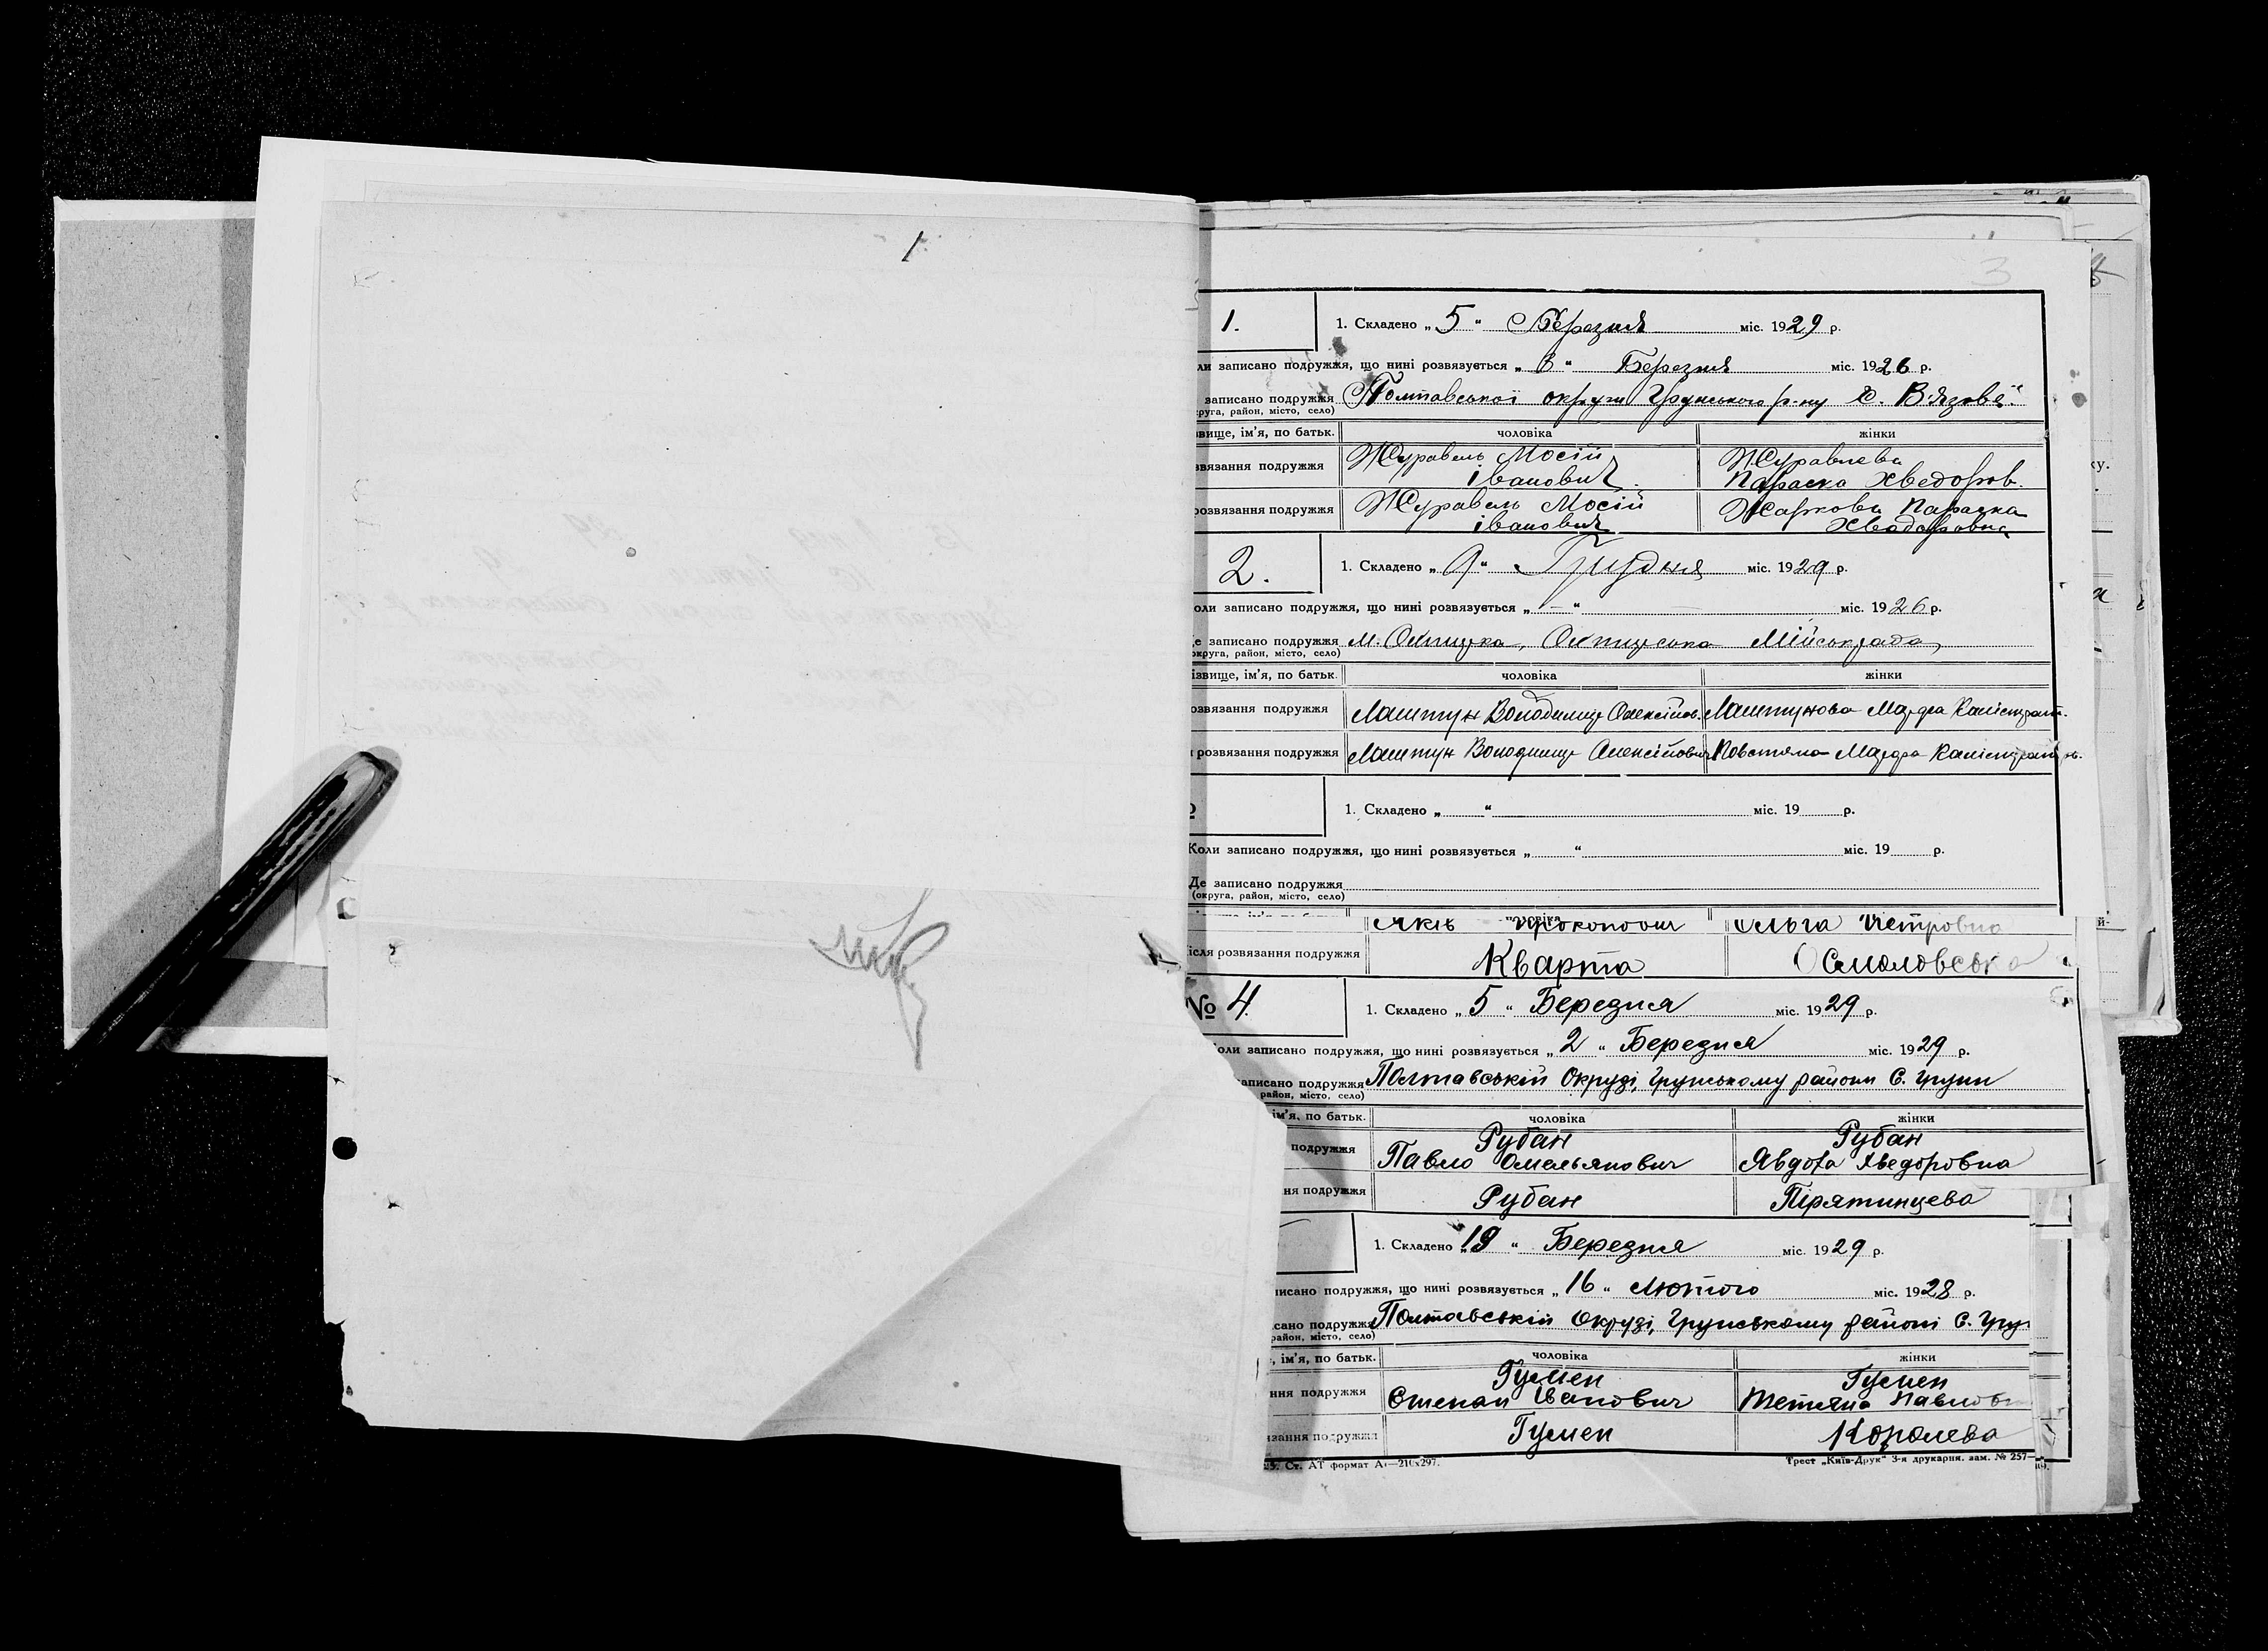 1
3
1.
1. Складено „ 5 “ Березня міс. 1929 р.
записано подружжя, що нині розвязується „ 8 “ Березня міс. 1926 р.
записано подружжя Полтавської округи Грунського р-ну С. Вязове
руга, район, місто, село)
звище, ім’я, по батьк. чоловіка жінки
звязання подружжя Журавель Мосій Журавлева
іванович Параска Хведоров.
розвязання подружжя Журавель Мосій Жаркова Параска
іванович Хведоровна
2.
1. Складено „ “ Грудня міс. 1929 р.
оли записано подружжя, що нині розвязується „ — “ — міс. 1926 р.
е записано подружжя м. Охтирка, Охтирська Міськрада
округа, район, місто, село)
ізвище, ім’я, по батьк. чоловіка жінки
озвязання подружжя Лаштун Володимир Олексійов. Лаштунова Марфа Калістрат.
розвязання подружжя Лаштун Володимир Олексійович Повстяна Марфа Калістратов.
1. Складено „ “ міс. 19 р.
Коли записано подружжя, що нині розвязується „ “ міс. 19 р.
Де записано подружжя
(округа, район, місто, село)
чоловіка
Яків Прокопович Ольга Петровна
ісля розвязання подружжя Кварта Смоловська
№ 4.
1. Складено „ 5 “ Березня міс. 1929 р.
оли записано подружжя, що нині розвязується „ 2 “ Березня міс. 1929 р.
записано подружжя Полтавській Окрузі, Грунському районі С. Грунь
район, місто, село)
ім’я, по батьк. чоловіка жінки
Рубан Рубан
подружжя Павло Омельянович Явдоха Хведоровна
ня подружжя Рубан Пірятинцева
1. Складено „ 19 “ Березня міс. 1929 р.
писано подружжя, що нині розвязується „ 16 “ Лютого міс. 1928 р.
сано подружжя Полтавській Окрузі, Грунському районі С. Грун
район, місто, село)
, ім’я, по батьк. чоловіка жінки
Гумен Гумен
ння подружжя Степан Іванович Тетяна Павловн
язання подружжя Гумен Королева
Ст. АТ формат А4—210х297.
Трест „Київ-Друк“ 3-я друкарня. зам. № 257—